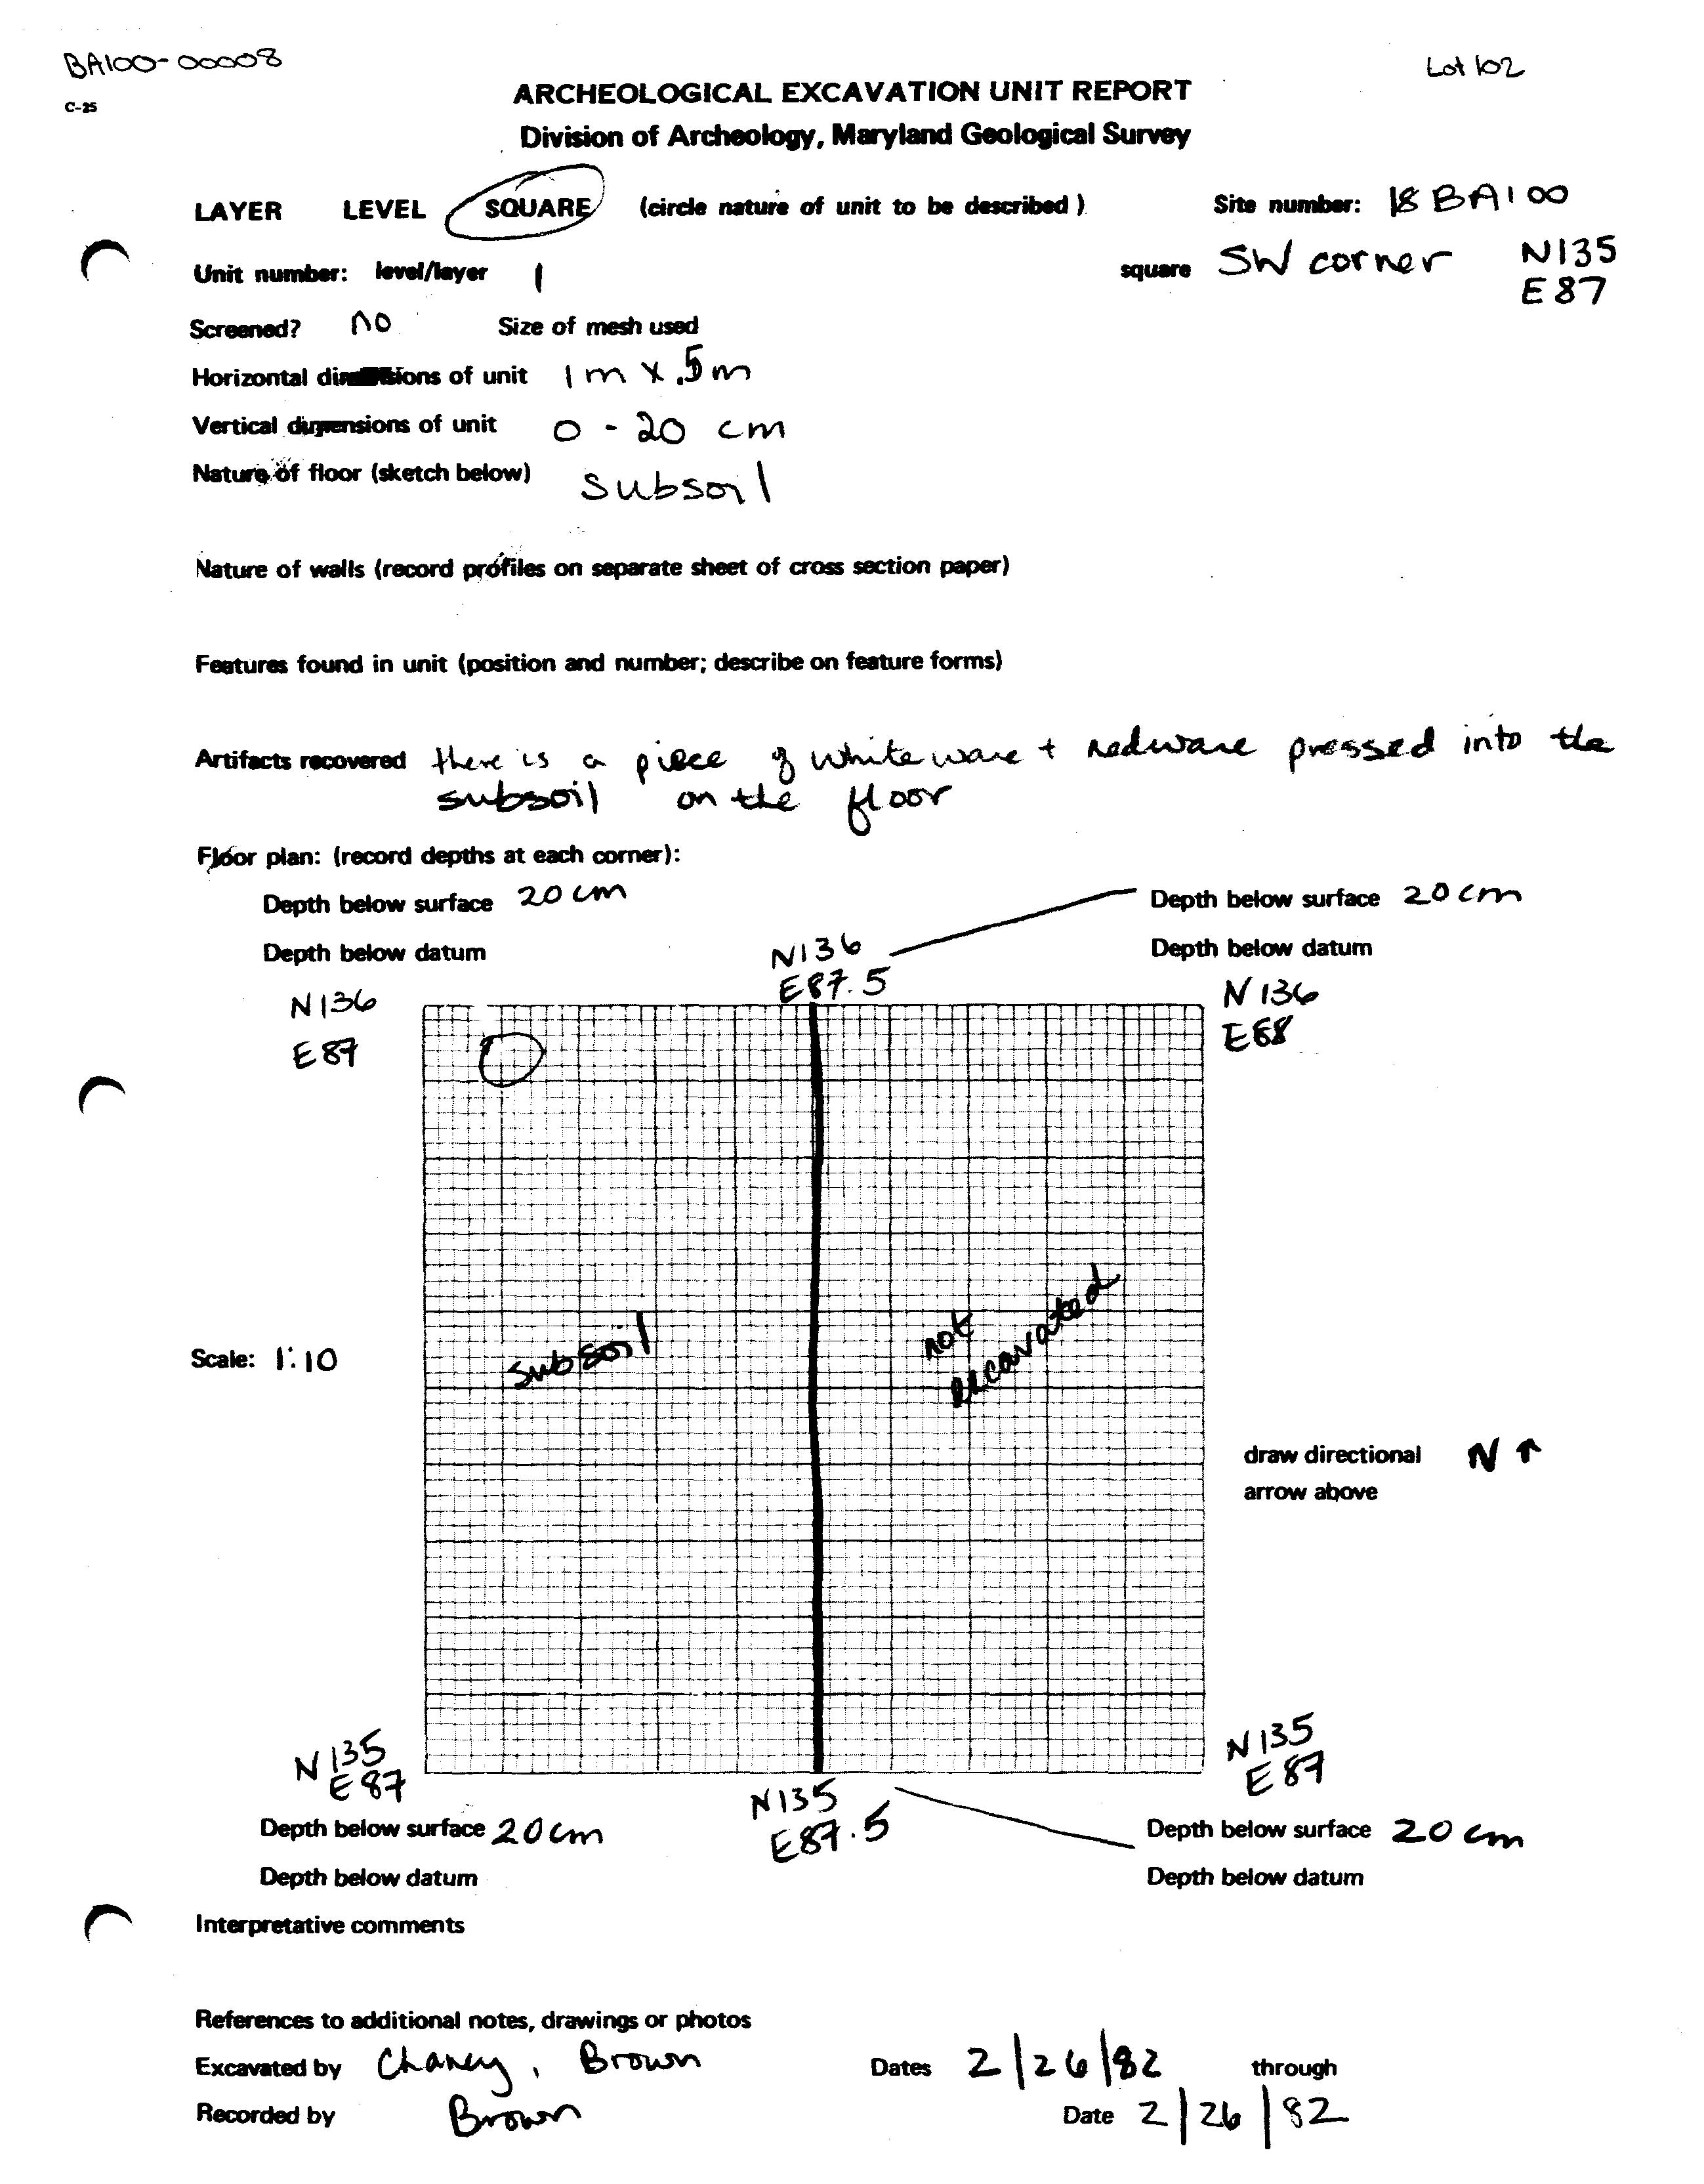 BA100-00008
Lot 102
C-25
ARCHEOLOGICAL EXCAVATION UNIT REPORT
Division of Archeology, Maryland Geological Survey
LAYER LEVEL SQUARE (circle nature of unit to be described) Site number: 18 BA100
Unit number: level/layer 1 square SW corner N135
E87
Screened? no Size of mesh used
Horizontal dimensions of unit 1m x .5m
Vertical dimensions of unit 0 - 20 cm
Nature of floor (sketch below) subsoil
Nature of walls (record profiles on separate sheet of cross section paper)
Features found in unit (position and number; describe on feature forms)
Artifacts recovered there is a piece of whiteware + redware pressed into the
subsoil on the floor
Floor plan: (record depths at each corner):
Depth below surface 20 cm Depth below surface 20 cm
Depth below datum Depth below datum
N136
E87.5
N136
E87
N136
E88
subsoil
not
excavated
Scale: 1:10
draw directional N ↑
arrow above
N135
E87
N135
E87.5
N135
E87
Depth below surface 20cm Depth below surface 20 cm
Depth below datum Depth below datum
Interpretative comments
References to additional notes, drawings or photos
Excavated by Chaney, Brown Dates 2/26/82 through
Recorded by Brown Date 2/26/82